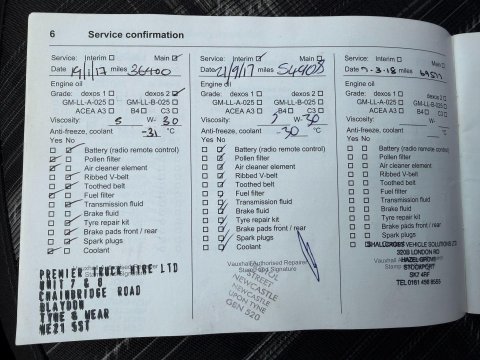 6 Service confirmation
Service: Interim ☐ Main ☑
Date 19/1/17 miles 36400
Engine oil
Grade: dexos 1 ☐ dexos 2 ☑
GM-LL-A-025 ☐ GM-LL-B-025 ☐
ACEA A3 ☐ B4 ☐ C3 ☐
Viscosity: 5 W- 30
Anti-freeze, coolant -31 °C
Yes No
Battery (radio remote control)
Pollen filter
Air cleaner element
Ribbed V-belt
Toothed belt
Fuel filter
Transmission fluid
Brake fluid
Tyre repair kit
Brake pads front / rear
Spark plugs
Coolant
PREMIER TRUCK HIRE LTD
UNIT 7 & 8
CHAINBRIDGE ROAD
BLAYDON
TYNE & WEAR
NE21 5ST
Service: Interim ☑ Main ☐
Date 21/9/17 miles 54908
Engine oil
Grade: dexos 1 ☐ dexos 2 ☐
GM-LL-A-025 ☐ GM-LL-B-025 ☐
ACEA A3 ☐ B4 ☐ C3 ☐
Viscosity: W- 30
Anti-freeze, coolant -30 °C
Yes No
Battery (radio remote control)
Pollen filter
Air cleaner element
Ribbed V-belt
Toothed belt
Fuel filter
Transmission fluid
Brake fluid
Tyre repair kit
Brake pads front / rear
Spark plugs
Coolant
Vauxhall Authorised Repairer
Stamp and Signature
STREET
NEWCASTLE
NEWCASTLE
UPON TYNE
Service: Interim ☐ Main ☑
Date 7-3-18 miles
Engine oil
Grade: dexos 1 ☐ dexos 2 ☐
GM-LL-A-025 ☐ GM-LL-B-025 ☐
ACEA A3 ☐ B4 ☐ C3 ☐
Viscosity: W-
Anti-freeze, coolant °C
Yes No
Battery (radio remote control)
Pollen filter
Air cleaner element
Ribbed V-belt
Toothed belt
Fuel filter
Transmission fluid
Brake fluid
Tyre repair kit
Brake pads front / rear
Spark plugs
SHALLCROSS VEHICLE SOLUTIONS LTD
320B LONDON RD
HAZEL GROVE
STOCKPORT
SK7 4RF
TEL 0161 456 8555